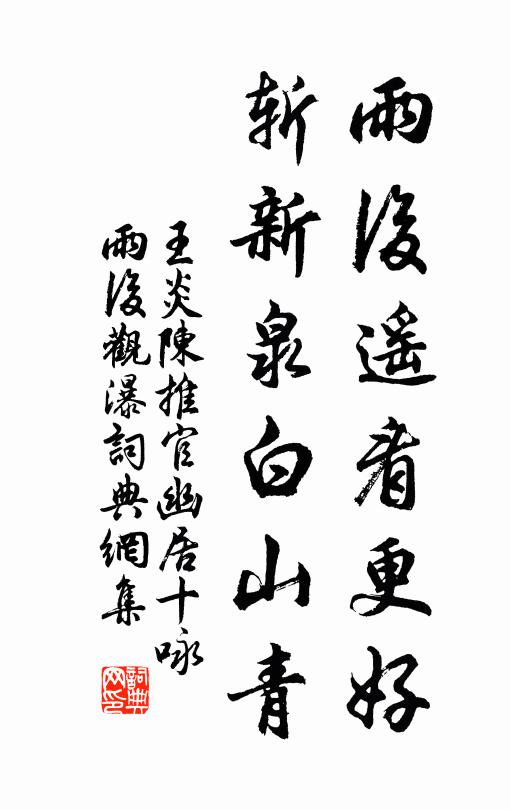 雨後遥看更好
斬新泉白山青
王炎陳推官幽居十咏
雨後觀瀑詞典網集
詞典
网印